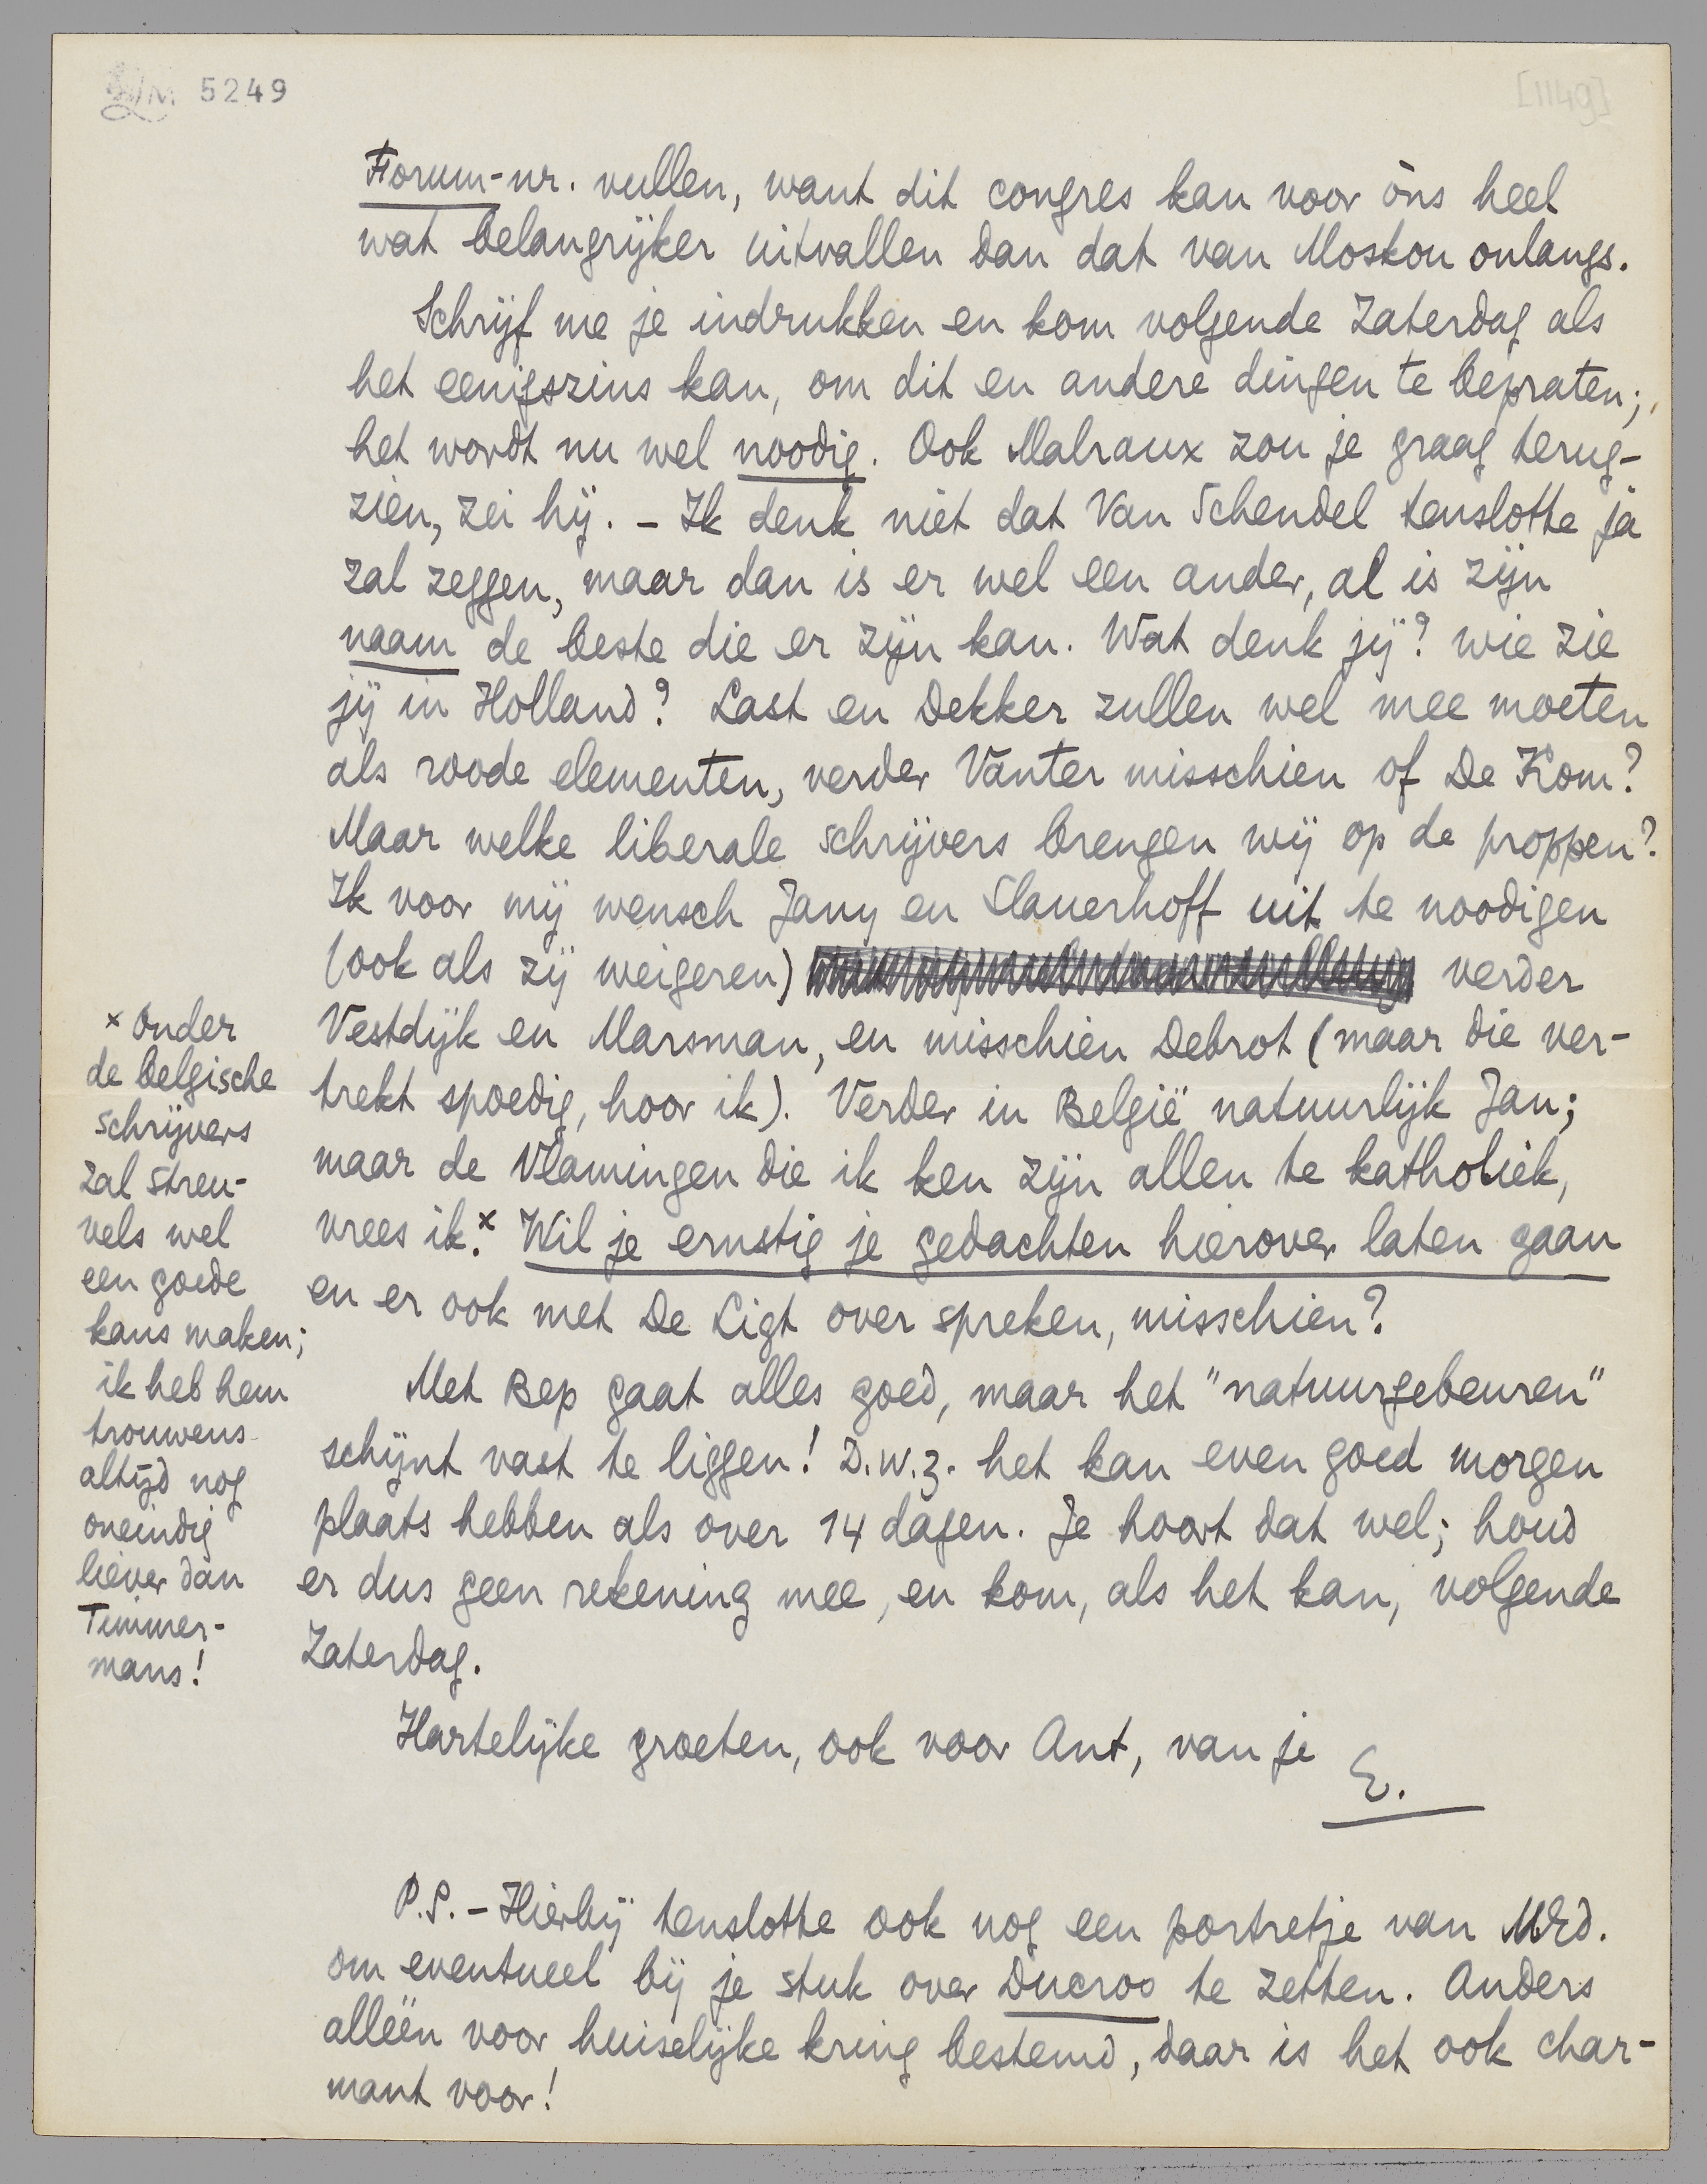 LM 5249
[1149]
Forum-nr. vullen, want dit congres kan voor òns heel
wat belangrijker uitvallen dan dat van Moskou onlangs.
Schrijf me je indrukken en kom volgende Zaterdag als
het eenigszins kan, om dit en andere dingen te bepraten;
het wordt nu wel noodig. Ook Malraux zou je graag terug-
zien, zei hij. – Ik denk niet dat Van Schendel tenslotte ja
zal zeggen, maar dan is er wel een ander, al is zijn
naam de beste die er zijn kan. Wat denk jij? wie zie
jij in Holland? Last en Dekker zullen wel mee moeten
als roode elementen, verder Vanter misschien of De Kom?
Maar welke liberale schrijvers brengen wij op de proppen?
Ik voor mij wensch Jany en Slauerhoff uit te noodigen
(ook als zij weigeren) verder
Vestdijk en Marsman, en misschien Debrot (maar die ver-
trekt spoedig, hoor ik). Verder in België natuurlijk Jan;
maar de Vlamingen die ik ken zijn allen te katholiek,
vrees ik.x Wil je ernstig je gedachten hierover laten gaan
en er ook met De Ligt over spreken, misschien?
Met Bep gaat alles goed, maar het "natuurgebeuren"
schijnt vast te liggen! D.w.z. het kan even goed morgen
plaats hebben als over 14 dagen. Je hoort dat wel; houd
er dus geen rekening mee, en kom, als het kan, volgende
Zaterdag.
Hartelijke groeten, ook voor Ant, van je
E.
P.S. – Hierbij tenslotte ook nog een portretje van M.Ed.
om eventueel bij je stuk over Ducroo te zetten. Anders
alléén voor huiselijke kring bestemd, daar is het ook char-
mant voor!
x Onder
de belgische
schrijvers
zal Streu-
vels wel
een goede
kans maken;
ik heb hem
trouwens
altijd nog
oneindig
liever dan
Timmer-
mans!